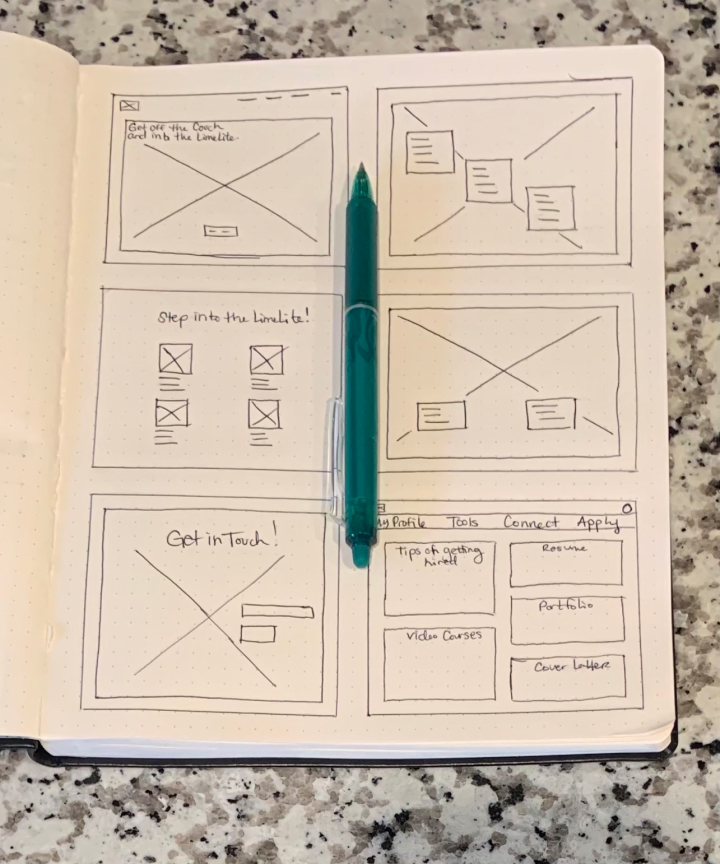 Get off the Couch
and into the Limelite.
Step into the Limelite!
Get in Touch!
My Profile Tools Connect Apply
Tips on getting
hired
Resume
Portfolio
Video Courses
Cover Letters